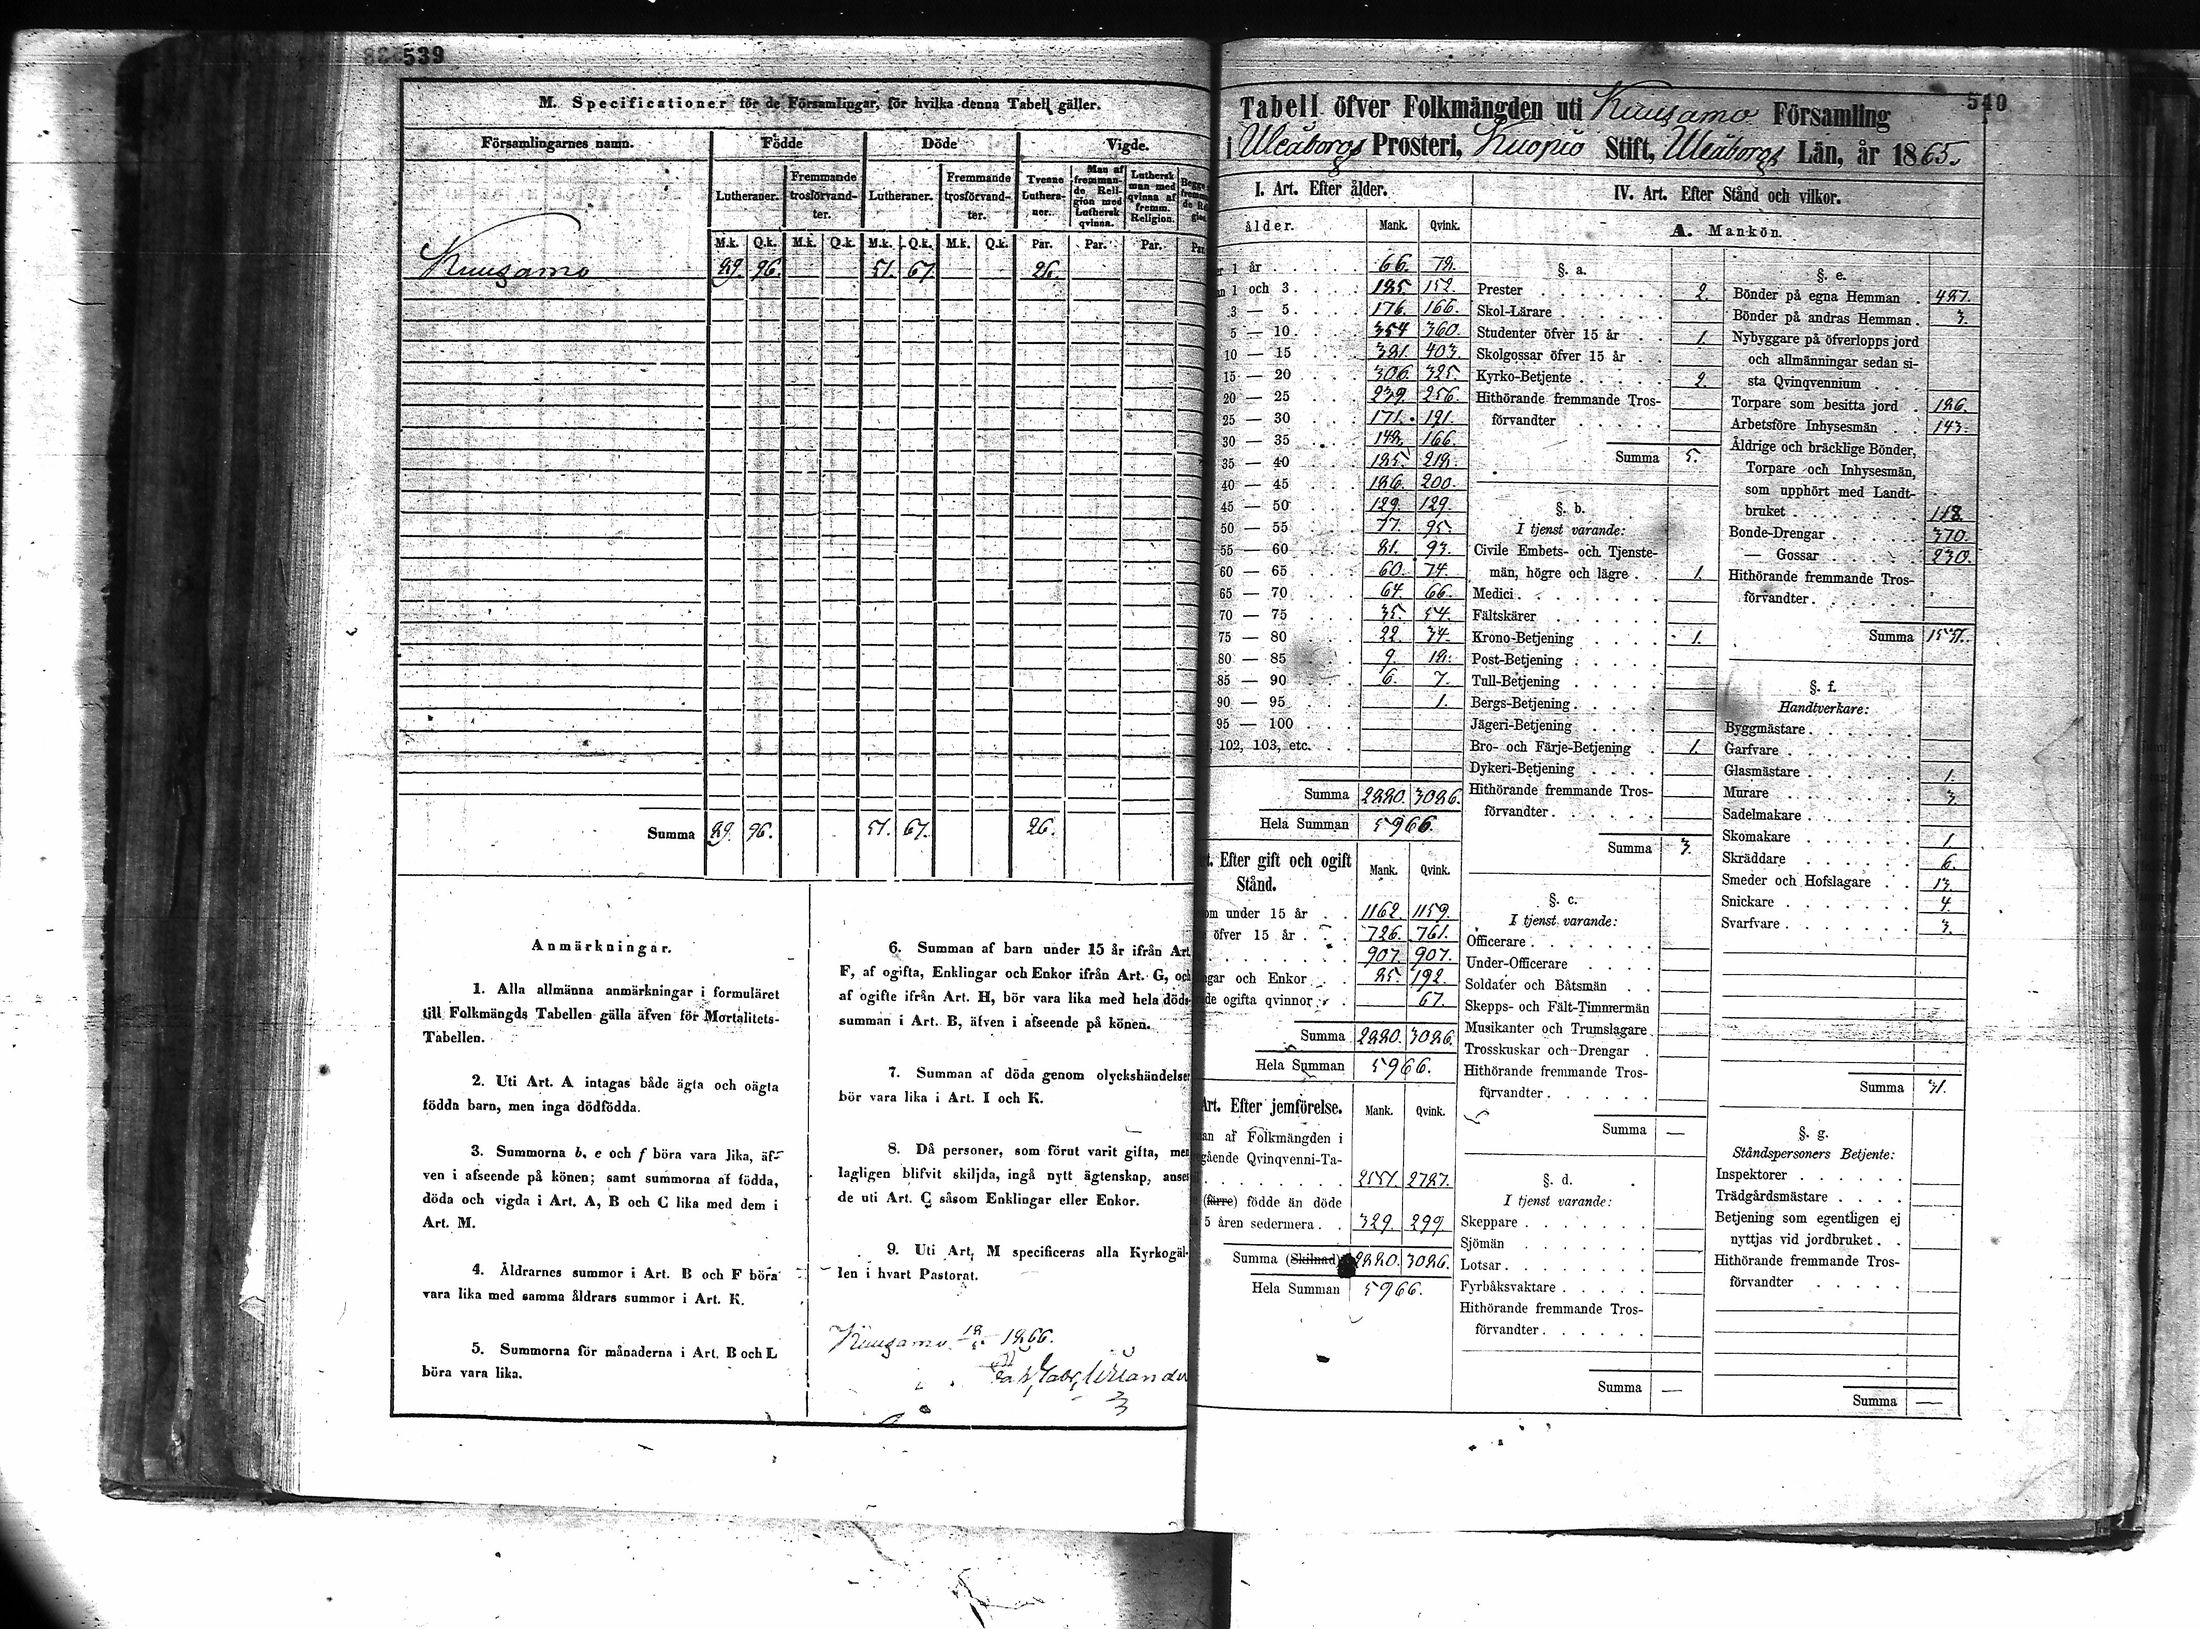 539
M. Specificationer för de Församlingar, för hvilka denna Tabell gäller.
Församlingarnes namn. Födde Döde Vigde.
Lutheraner. Fremmande trosförvandter. Lutheraner. Fremmande trosförvandter. Tvenne Lutheraner. Man af fremmande Religion med Luthersk qvinna. Luthersk man med qvinna af fremm. Religion.
M.k. Q.k. M.k. Q.k. M.k. Q.k. M.k. Q.k. Par. Par. Par. Par
Kuusamo 89. 96. 51. 67. 26.
Summa 89. 96. 51. 67. 26.
Anmärkningar.
1. Alla allmänna anmärkningar i formuläret
till Folkmängds Tabellen gälla äfven för Mortalitets-
Tabellen.
2. Uti Art. A intagas både ägta och oägta
födda barn, men inga dödfödda.
3. Summorna b, e och f böra vara lika, äf-
ven i afseende på könen; samt summorna af födda,
döda och vigda i Art. A, B och C lika med dem i
Art. M.
4. Åldrarnes summor i Art. B och F böra
vara lika med samma åldrars summor i Art. K.
5. Summorna för månaderna i Art. B och L
böra vara lika.
6. Summan af barn under 15 år ifrån Art.
F, af ogifta, Enklingar och Enkor ifrån Art. G, och
af ogifte ifrån Art. H, bör vara lika med hela döds-
summan i Art. B, äfven i afseende på könen.
7. Summan af döda genom olyckshändelser
bör vara lika i Art. I och K.
8. Då personer, som förut varit gifta, men
lagligen blifvit skiljda, ingå nytt ägtenskap, anses
de uti Art. C såsom Enklingar eller Enkor.
9. Uti Art. M specificeras alla Kyrkogäl-
len i hvart Pastorat.
Kuusamo 1866.
540
Tabell öfver Folkmängden uti Kuusamo Församling
i Uleåborgs Prosteri, Kuopio Stift, Uleåborgs Län, år 1865.
I. Art. Efter ålder.
ålder. Mank. Qvink.
1 år 66. 78.
1 och 3 185. 152.
3 — 5 176. 166.
5 — 10 354 360.
10 — 15 381. 403.
15 — 20 306. 325.
20 — 25 239. 256.
25 — 30 171. 191.
30 — 35 148. 166.
35 — 40 185. 218.
40 — 45 186. 200.
45 — 50 129. 129.
50 — 55 77. 95.
55 — 60 81. 93.
60 — 65 60. 74.
65 — 70 64. 66.
70 — 75 35. 54.
75 — 80 22. 34.
80 — 85 9. 18.
85 — 90 6. 7.
90 — 95 1.
95 — 100
102, 103, etc.
Summa 2880. 3086.
Hela Summan 5966.
Efter gift och ogift
Stånd. Mank. Qvink.
under 15 år 1162. 1159.
öfver 15 år 726. 761.
907. 907.
och Enkor 85. 192.
ogifta qvinnor 67.
Summa 2880. 3086.
Hela Summan 5966.
Art. Efter jemförelse. Mank. Qvink.
af Folkmängden i
gående Qvinqvenni-Ta-
2551. 2787.
(färre) födde än döde
5 åren sedermera 329. 299.
Summa (Skilnad) 2880. 3086.
Hela Summan 5966.
IV. Art. Efter Stånd och vilkor.
A. Mankön.
§. a.
Prester 2.
Skol-Lärare
Studenter öfver 15 år 1.
Skolgossar öfver 15 år
Kyrko-Betjente 2.
Hithörande fremmande Tros-
förvandter
Summa 5.
§. b.
I tjenst varande:
Civile Embets- och Tjenste-
män, högre och lägre 1.
Medici
Fältskärer
Krono-Betjening 1.
Post-Betjening
Tull-Betjening
Bergs-Betjening
Jägeri-Betjening
Bro- och Färje-Betjening 1.
Dykeri-Betjening
Hithörande fremmande Tros-
förvandter
Summa 3.
§. c.
I tjenst varande:
Officerare
Under-Officerare
Soldater och Båtsmän
Skepps- och Fält-Timmermän
Musikanter och Trumslagare
Trosskuskar och Drengar
Hithörande fremmande Tros-
förvandter
Summa —
§. d.
I tjenst varande:
Skeppare
Sjömän
Lotsar
Fyrbåksvaktare
Hithörande fremmande Tros-
förvandter
Summa —
§. e.
Bönder på egna Hemman 487.
Bönder på andras Hemman 3.
Nybyggare på öfverlopps jord
och allmänningar sedan si-
sta Qvinqvennium
Torpare som besitta jord 186.
Arbetsföre Inhysesmän 143.
Åldrige och bräcklige Bönder,
Torpare och Inhysesmän,
som upphört med Landt-
bruket 118.
Bonde-Drengar 370.
— Gossar 230.
Hithörande fremmande Tros-
förvandter
Summa 1537.
§. f.
Handtverkare:
Byggmästare
Garfvare
Glasmästare 1.
Murare 3.
Sadelmakare
Skomakare 1.
Skräddare 6.
Smeder och Hofslagare 13.
Snickare 4.
Svarfvare 3.
Summa 31.
§. g.
Ståndspersoners Betjente:
Inspektorer
Trädgårdsmästare
Betjening som egentligen ej
nyttjas vid jordbruket
Hithörande fremmande Tros-
förvandter
Summa —